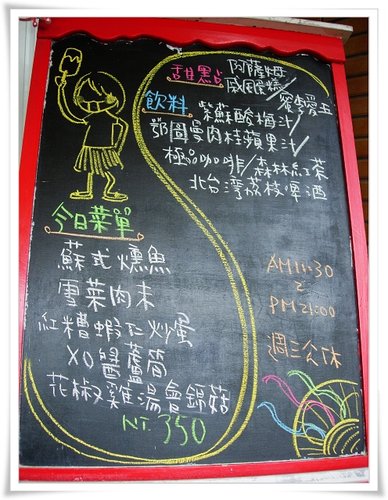 甜點 阿薩姆
戚風蛋糕/蜜愛玉
飲料 紫蘇酸梅汁/
鄂圖曼肉桂蘋果汁/
極品咖啡/森林紅茶
北台灣荔枝啤酒
今日菜單
蘇式燻魚
雪菜肉末
紅糟蝦仁炒蛋
XO醬蘆筍
花椒雞湯會錦菇
NT.350
AM11:30
PM21:00
週三公休